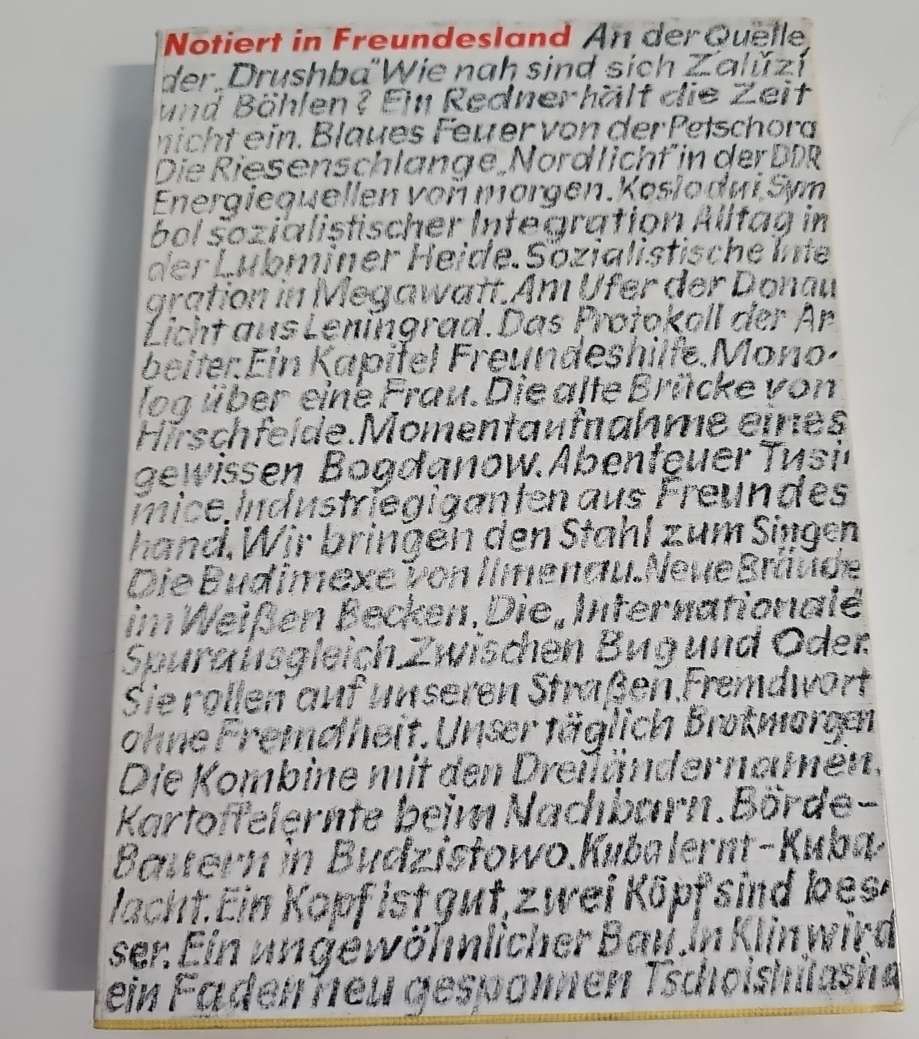 Notiert in Freundesland An der Quelle
der „Drushba" Wie nah sind sich Zalúzí
und Böhlen? Ein Redner hält die Zeit
nicht ein. Blaues Feuer von der Petschora
Die Riesenschlange „Nordlicht" in der DDR
Energiequellen von morgen. Kosloduj, Sym
bol sozialistischer Integration Alltag in
der Lubminer Heide. Sozialistische Inte
gration in Megawatt. Am Ufer der Donau
Licht aus Leningrad. Das Protokoll der Ar
beiter. Ein Kapitel Freundeshilfe. Mono-
log über eine Frau. Die alte Brücke von
Hirschfelde. Momentaufnahme eines
gewissen Bogdanow. Abenteuer Tusi
mice. Industriegiganten aus Freundes
hand. Wir bringen den Stahl zum Singen
Die Budimexe von Ilmenau. Neue Bräuche
im Weißen Becken. Die „Internationale
Spurausgleich Zwischen Bug und Oder.
Sie rollen auf unseren Straßen. Fremdwort
ohne Fremdheit. Unser täglich Brot morgen
Die Kombine mit den Dreiländernamen.
Kartoffelernte beim Nachbarn. Börde-
Bauern in Budzistowo. Kuba lernt - Kuba
lacht. Ein Kopf ist gut, zwei Köpf sind bes-
ser. Ein ungewöhnlicher Bau. In Klin wird
ein Faden neu gesponnen